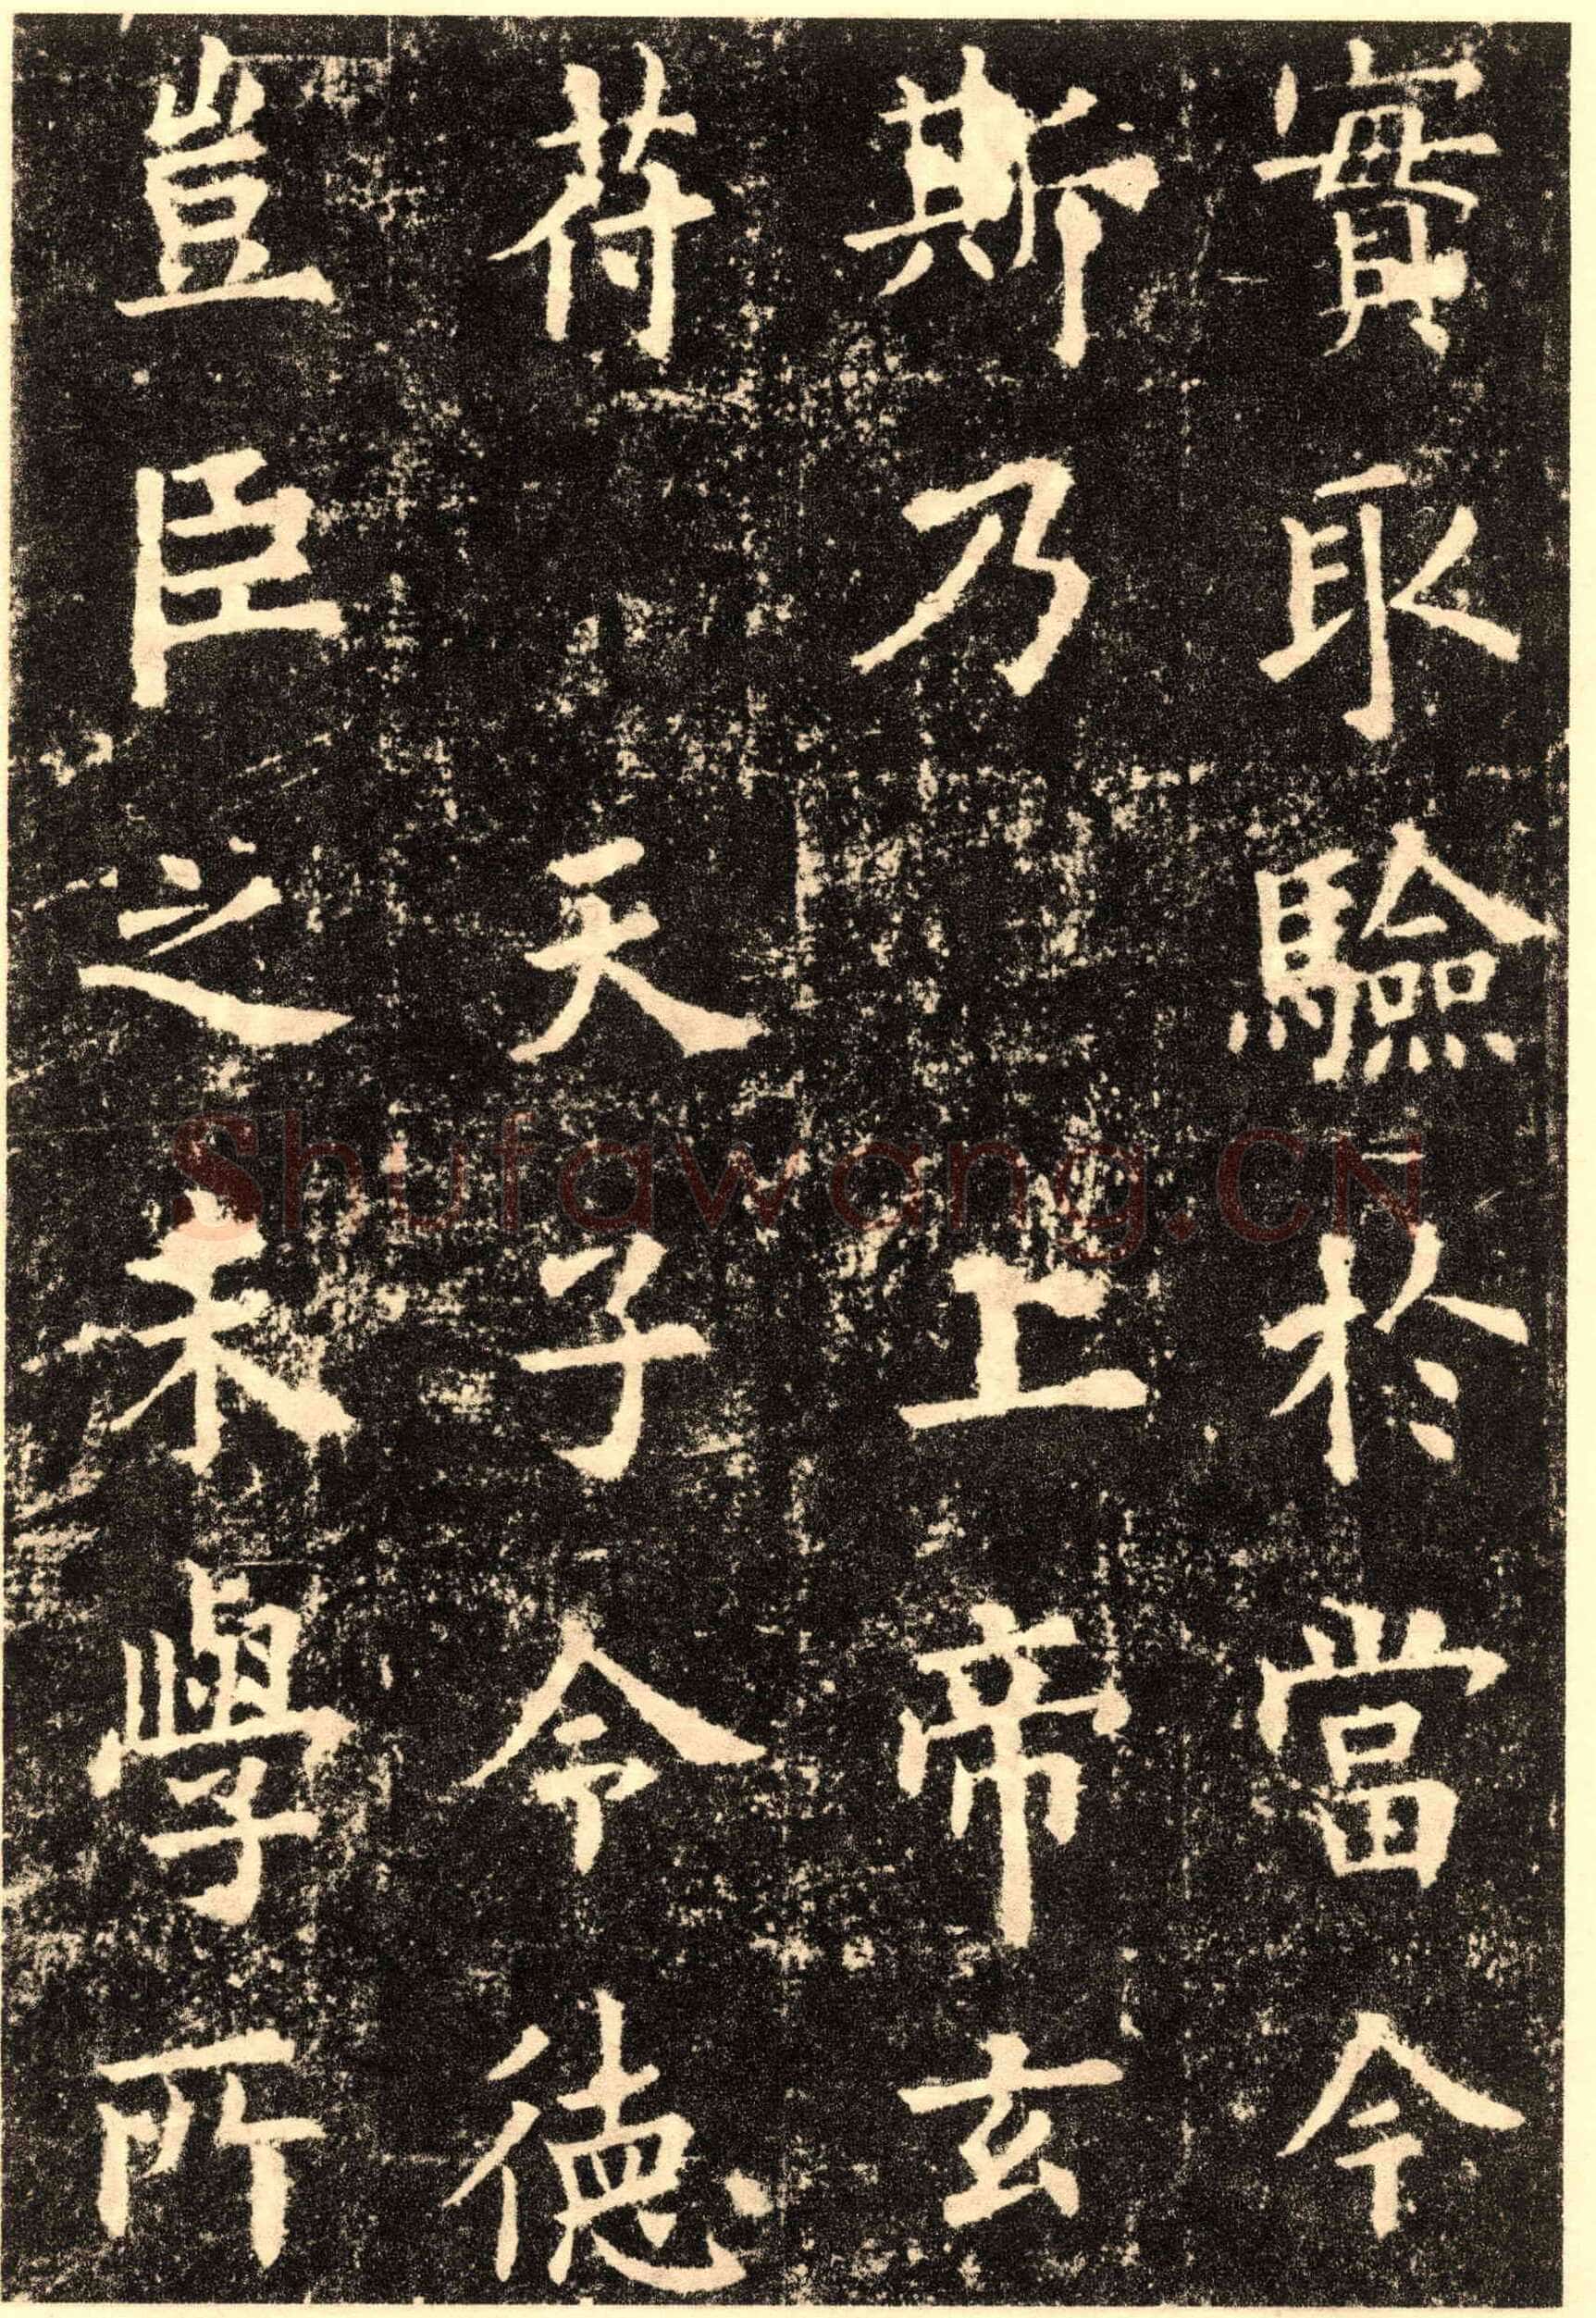 實取驗於當今
斯乃上帝玄
符天子令德
豈臣之末學所
Shufawang.CN